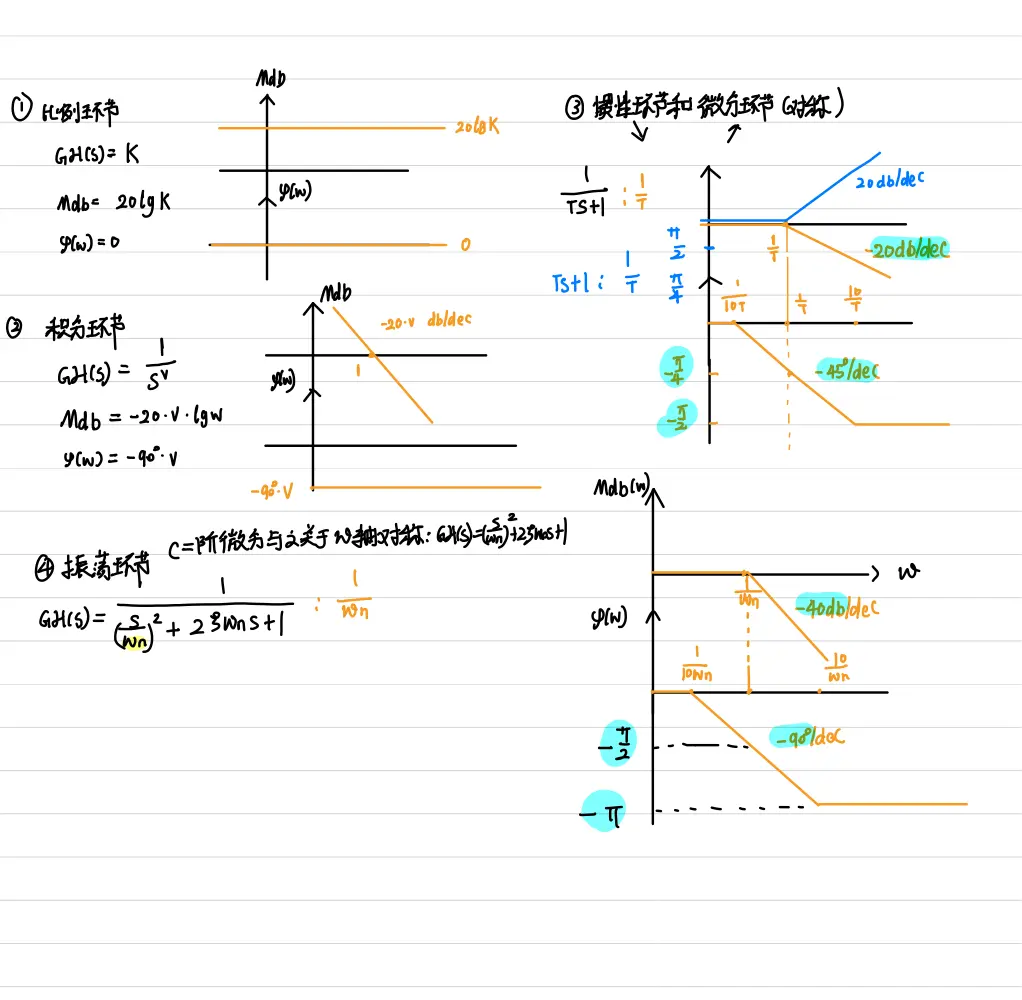 ① 比例环节
GH(s) = K
Mdb = 20lgK
φ(w) = 0
Mdb
20lgK
φ(w)
0
② 积分环节
GH(s) = 1/s^v
Mdb = -20·v·lgw
φ(w) = -90°·v
Mdb
-20·v db/dec
1
φ(w)
-90°·v
③ 惯性环节和微分环节(对称)
1/(Ts+1) : 1/T
Ts+1 : 1/T
20db/dec
-20db/dec
1/T
π/2
π/4
1/10T
1/T
10/T
-π/4
-45°/dec
-π/2
④ 振荡环节
(二阶微分与之关于w轴对称: GH(s)=(s/wn)²+2ξwns+1
GH(s) = 1/((s/wn)² + 2ξwns+1) : 1/wn
Mdb(w)
w
1/wn
-40db/dec
φ(w)
1/10wn
10/wn
-π/2
-90°/dec
-π